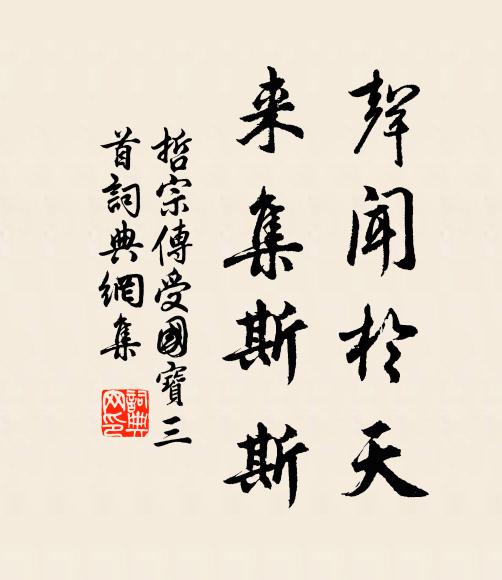 聲聞於天
来集斯斯
哲宗傳受國寶三
首詞典網集
詞典
网印